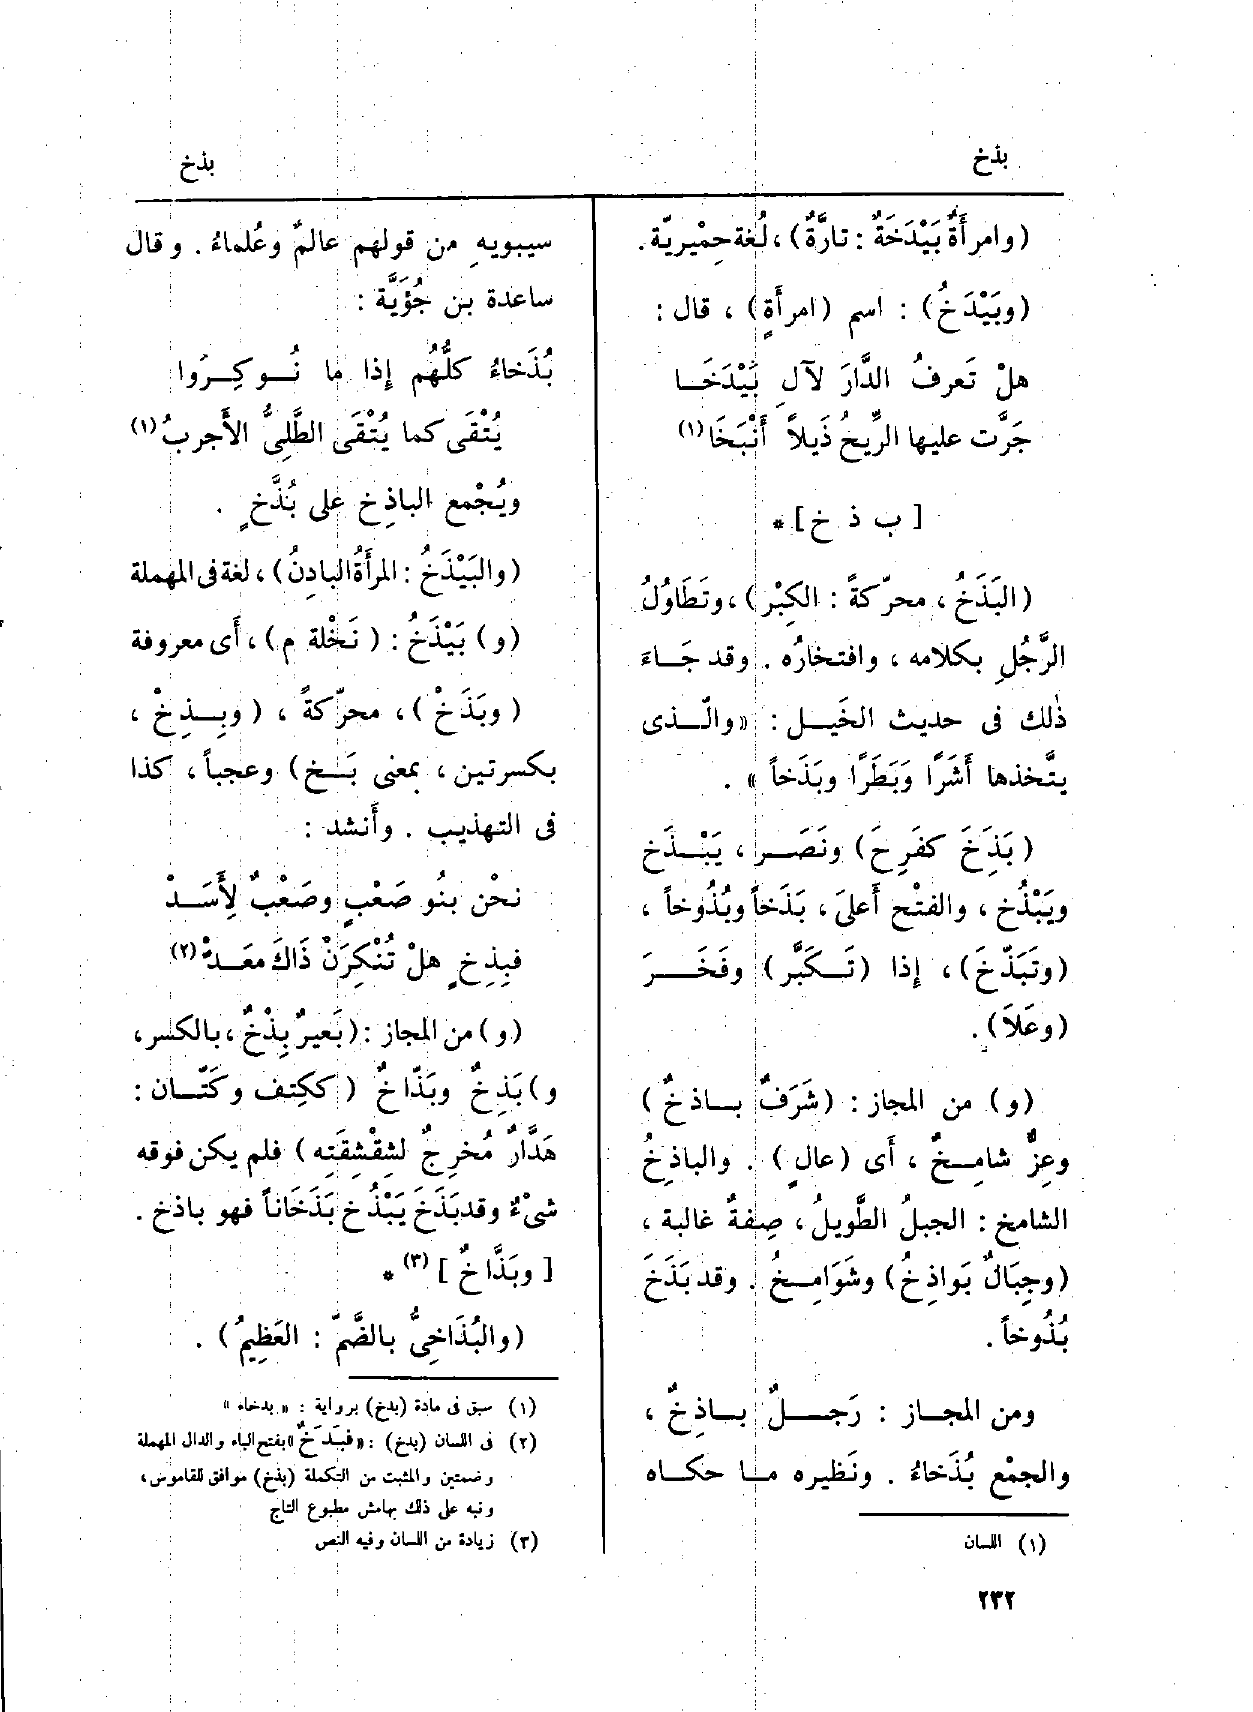 بذخ
بذخ
(وامرأةٌ بَيْدَخَةٌ : تارَّةٌ) ، لُغة حِمْيريّة .
(وبَيْدَخُ) : اسم (امرأَةٍ) ، قال :
هلْ تَعرفُ الدَّارَ لآلِ بَيْدَخَــا
جَرَّت عليها الرِّيحُ ذَيلاً أَنْبَخَا (١)
[ ب ذ خ ] *
(البَذَخُ ، محرّكةً : الكِبْر) ، وتَطَاوُلُ
الرَّجُلِ بكلامه ، وافتخارُه . وقد جَـاءَ
ذٰلك فى حديث الخَيـل : «والّـذى
يتَّخذها أَشَرًا وَبَطَرًا وبَذَخاً » .
(بَذِخَ كفَرِحَ) ونَصَـر ، يَبْـذَخ
ويَبْذُخ ، والفتْح أَعلىَ ، بَذَخاً وبُذُوخاً ،
(وتَبَذَّخَ) ، إذا (تَـكبَّر) وفَخَـرَ
(وعَلاَ) .
(و) من المجاز : (شَرَفٌ بـاذخٌ)
وعِزٌّ شامِـخٌ ، أَى (عالٍ) . والباذِخُ
الشامخ : الجبلُ الطَّويلُ ، صِفةٌ غالبة ،
(وجِبَالٌ بَواذِخُ) وشَوَامِـخُ . وقد بَذَخَ
بُذُوخاً .
ومن المجـاز : رَجـلٌ بـاذِخٌ ،
والجمْع بُذَخاءُ . ونَظيره مـا حكـاه
(١) اللسان
٢٣٢
سيبويهِ من قولهم عالمٌ وعُلماءُ . وقال
ساعدة بن جُؤَيَّة :
بُذَخاءُ كلُّهُم إذا ما نُـوكِـرُوا
يُتْقَى كما يُتْقَى الطَّلِىُّ الأَجربُ (١)
ويُجْمع الباذِخ على بُذَّخٍ .
(والبَيْذَخُ : المرأَةُ البادِنُ) ، لغة فى المهملة
(و) بَيْذَخُ : ( نَخْلة م) ، أَى معروفة
( وبَذَخْ) ، محرّكةً ، (وبِـذِخْ ،
بكسرتين ، بمعنى بَـخ) وعجباً ، كذا
فى التهذيب . وأَنشد :
نحْن بنُو صَعْبٍ وصَعْبٌ لِأَسَـدْ
فبِذِخٍ هلْ تُنْكِرَنْ ذَاكَ معَـدْ (٢)
(و) من المجاز : (بَعيرٌ بِذْخٌ ، بالكسر ،
و) بَذِخٌ وبَذّاخٌ (ككتِف وكَتّـان :
هَدَّارٌ مُخرِجٌ لشِقْشِقَتِه) فلم يكن فوقه
شىْءٌ وقد بَذَخَ يَبْذُخ بَذَخَاناً فهو باذخ .
[ وبَذَّاخٌ ] (٣) *
(والبُذَاخِىُّ بالضَّمّ : العَظِيمُ) .
(١) سبق فى مادة (بدخ) برواية : « بدخاء »
(٢) فى اللسان (بدخ) : «فبَدَخٌ» بفتح الباء والدال المهملة
وضمتين والمثبت من التكملة (بذخ) موافق للقاموس ،
ونبه على ذلك بهامش مطبوع التاج
(٣) زيادة من اللسان وفيه النص